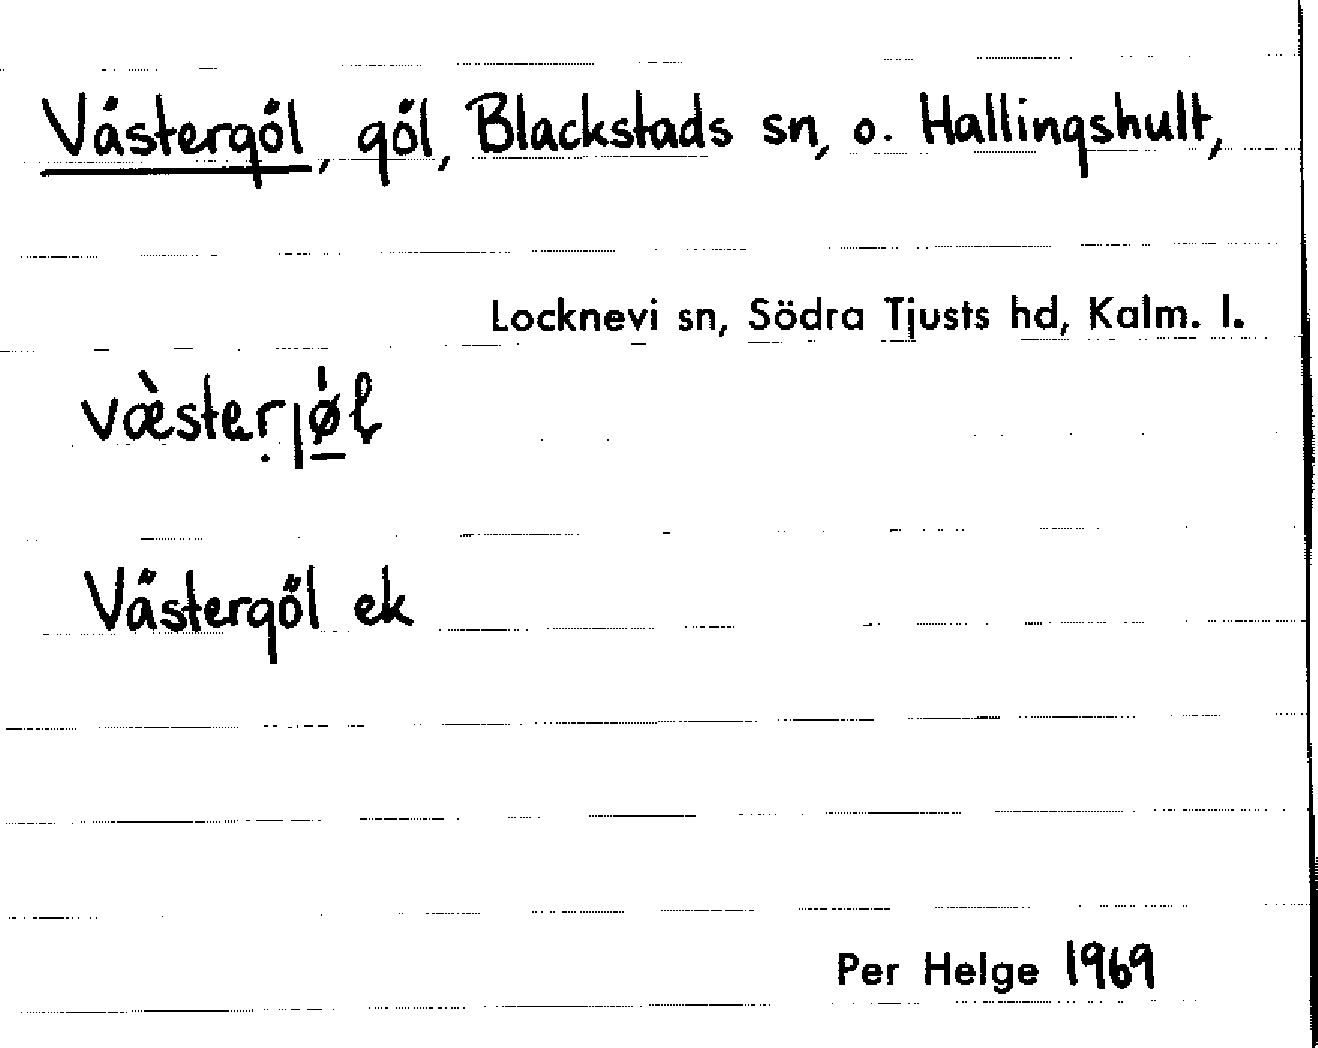 Västergöl, göl, Blackstads sn, o. Hallingshult,
Locknevi sn, Södra Tjusts hd, Kalm. l.
væ̀ste̠ṛjǿ̠ɽ
Västergöl ek
Per Helge 1969